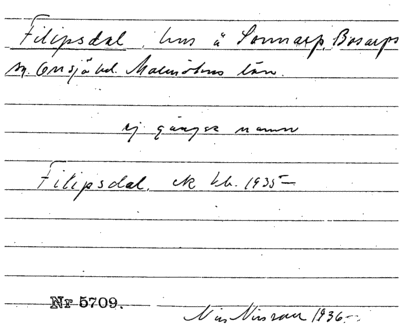 Filipsdal, hus å Sonnarp, Bosarps
sn. Onsjö hd. Malmöhus län.
ej gängse namn
Filipsdal. kb. 1935–
Nr 5709.
Nils Nilsson 1936.